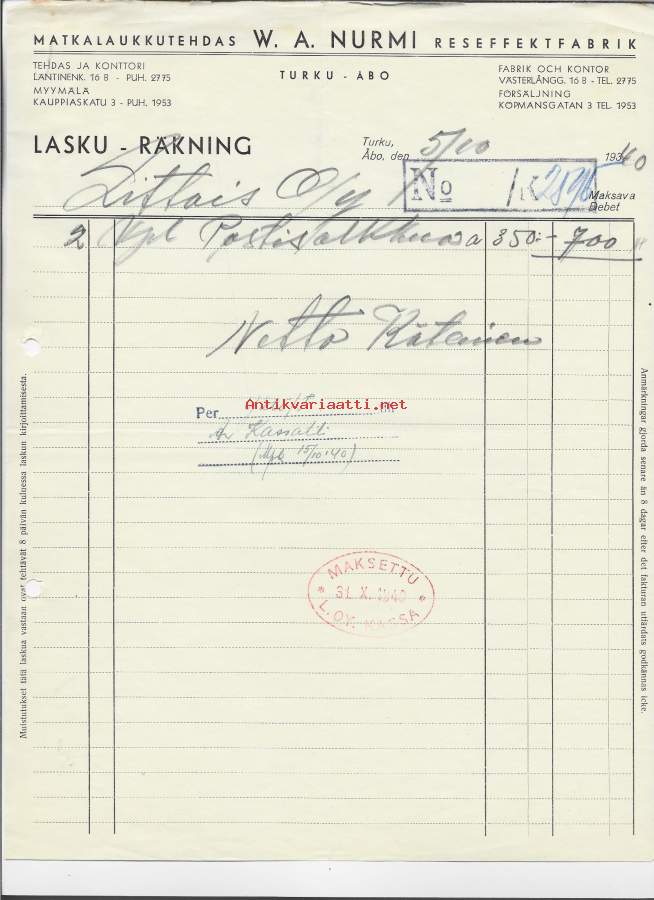 MATKALAUKKUTEHDAS W. A. NURMI RESEFFEKTFABRIK
TEHDAS JA KONTTORI
LÄNTINENK. 16 B - PUH. 2775
MYYMÄLÄ
KAUPPIASKATU 3 - PUH. 1953
TURKU - ÅBO
FABRIK OCH KONTOR
VÄSTERLÅNGG. 16 B - TEL. 2775
FÖRSÄLJNING
KÖPMANSGATAN 3 TEL. 1953
LASKU - RÄKNING
Turku,
Åbo, den 5/10 1940
Littois O/y
No /K 2896
Maksava
Debet
2 Kpl a 350:- 700
Netto Käteinen
Antikvariaatti.net
Per
Kassatili
15/10.40)
MAKSETTU
31. X. 1940
L. OY. KASSA
Muistutukset tätä laskua vastaan ovat tehtävät 8 päivän kuluessa laskun kirjoittamisesta.
Anmärkningar gjorda senare än 8 dagar efter det fakturan utfärdats godkännas icke.